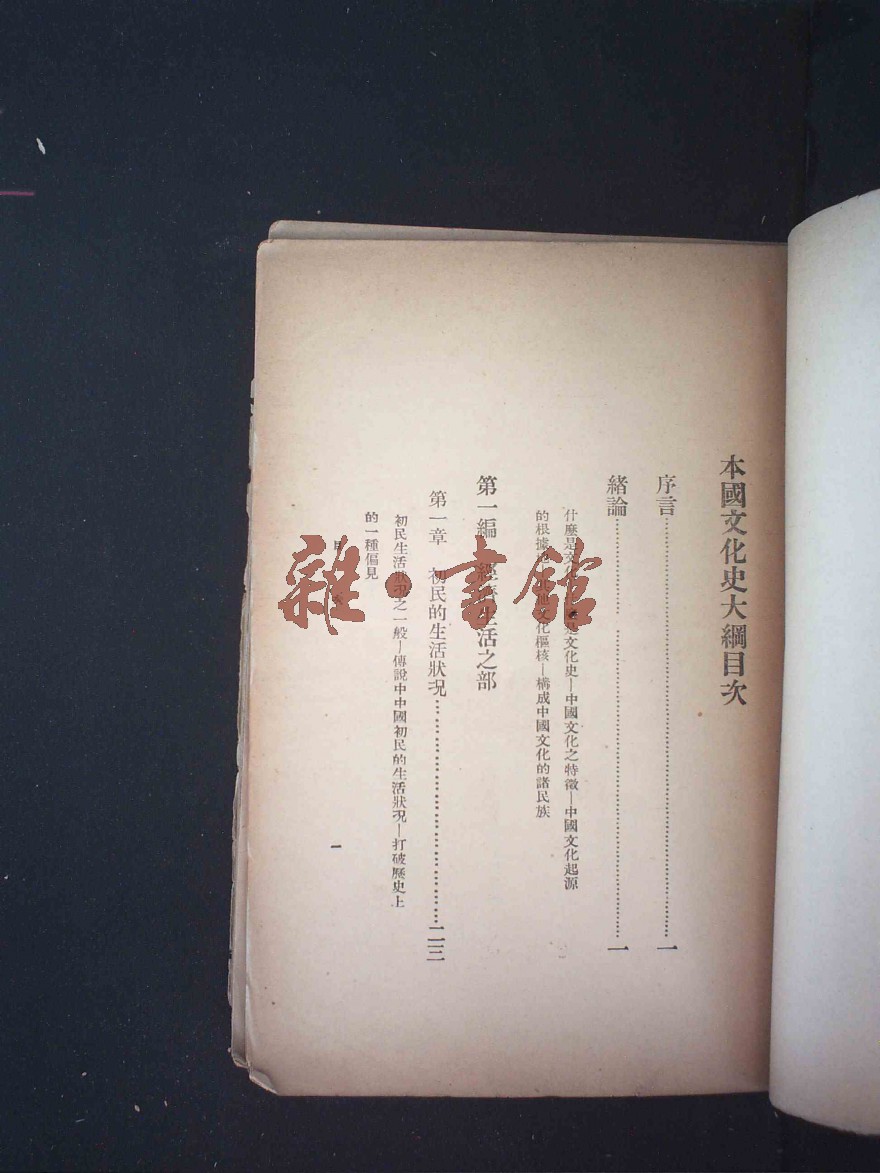 本國文化史大綱目次
序言……一
緒論……一
什麼是文化 文化史—中國文化之特徵—中國文化起源
的根據地 文化樞核—構成中國文化的諸民族
第一編 經濟生活之部
第一章 初民的生活狀況……二三
初民生活狀況之一般—傳說中中國初民的生活狀況—打破歷史上
的一種偏見
目 一
雜·書館